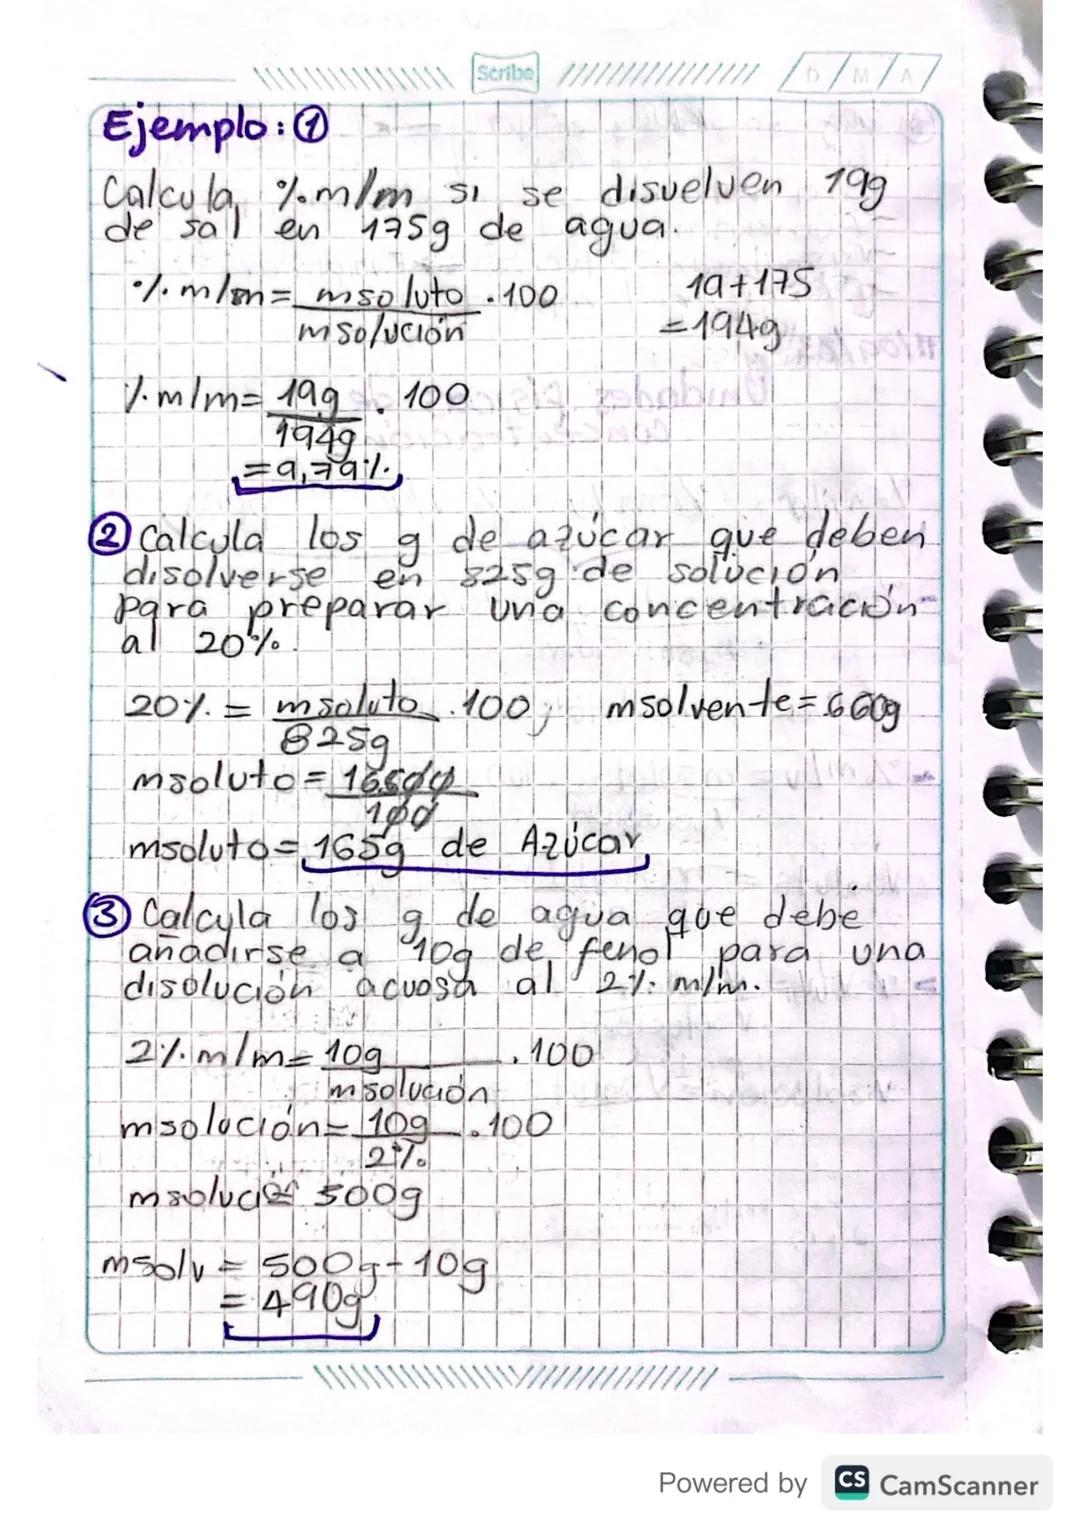 Scribe
D / M / A
Ejemplo: ①
Calcula %.m/m si se disuelven 19g
de sal en 175g de agua.
%. m/m = msoluto . 100
msolución
19+175
=194g
%. m/m= 19g . 100
194g
=9,79%.
② Calcula los g de azúcar que deben
disolverse en 825g de solución
para preparar una concentración
al 20%.
20%. = msoluto . 100; msolvente= 660g
825g
msoluto = 16500
100
msoluto= 165g de Azúcar
③ Calcula los g de agua que debe
añadirse a 10g de fenol para una
disolución acuosa al 2%. m/m.
2%. m/m= 10g . 100
msolución
msolución= 10g . 100
2%.
msolución 500g
msolv = 500g - 10g
= 490g
Powered by CS CamScanner